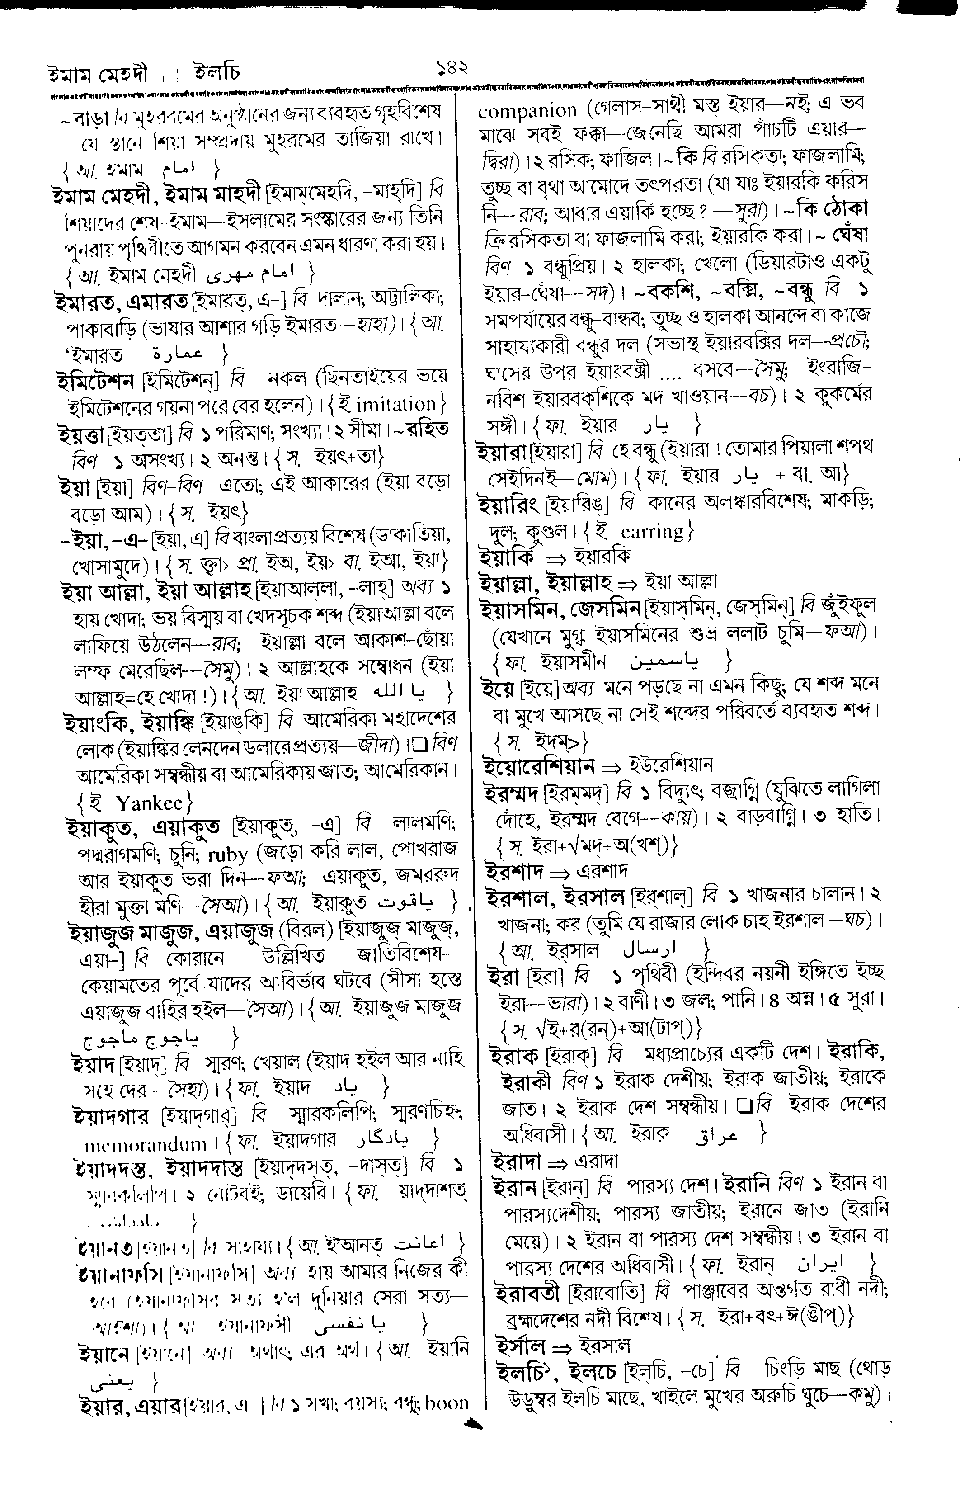 ইমাম মেহদী ইলচি
১৪২
~বাড়া বি মুহররমের অনুষ্ঠানের জন্য ব্যবহৃত গৃহবিশেষ
যে স্থানে শিয়া সম্প্রদায় মুহরমের তাজিয়া রাখে।
{আ. ইমাম امام }
ইমাম মেহদী, ইমাম মাহদী [ইমাম্‌মেহদি, -মাহ্‌দি] বি
শিয়াদের শেষ-ইমাম—ইসলামের সংস্কারের জন্য তিনি
পুনরায় পৃথিবীতে আগমন করবেন এমন ধারণা করা হয়।
{আ. ইমাম মেহদী امام مهرى }
ইমারত, এমারত [ইমারত্‌, এ-] বি দালান; অট্টালিকা;
পাকাবাড়ি (ভাযার আশার গড়ি ইমারত—হাহা)। {আ.
‘ইমারত عمارة }
ইমিটেশন [ইমিটেশন্‌] বি নকল (ছিনতাইয়ের ভয়ে
ইমিটেশনের গয়না পরে বের হলেন)। {ই imitation}
ইয়ত্তা [ইয়ত্‌তা] বি ১ পরিমাণ; সংখ্যা। ২ সীমা। ~রহিত
বিণ ১ অসংখ্য। ২ অনন্ত। {স. ইয়ৎ+তা}
ইয়া [ইয়া] বিণ-বিণ এতো; এই আকারের (ইয়া বড়ো
বড়ো আম)। {স. ইয়ৎ}
-ইয়া, -এ- [ইয়া, এ] বি বাংলা প্রত্যয় বিশেষ (ডাকাতিয়া,
খোসামুদে)। {স. ক্ত্বা> প্রা. ইঅ, ইয়> বা. ইআ, ইয়া}
ইয়া আল্লা, ইয়া আল্লাহ [ইয়াআল্‌লা, -লাহ্‌] অব্য ১
হায় খোদা; ভয় বিস্ময় বা খেদসূচক শব্দ (ইয়াআল্লা বলে
লাফিয়ে উঠলেন—রাব; ইয়াল্লা বলে আকাশ-ছোঁয়া
লম্ফ মেরেছিল—সৈমু)। ২ আল্লাহকে সম্বোধন (ইয়া
আল্লাহ=হে খোদা!)। {আ. ইয়া আল্লাহ يا الله }
ইয়াংকি, ইয়াঙ্কি [ইয়াঙ্‌কি] বি আমেরিকা মহাদেশের
লোক (ইয়াঙ্কির লেনদেন ডলারে প্রত্যয়—জীদা)। ❑ বিণ
আমেরিকা সম্বন্ধীয় বা আমেরিকায় জাত; আমেরিকান।
{ই Yankee}
ইয়াকুত, এয়াকুত [ইয়াকুত্‌, -এ] বি লালমণি;
পদ্মরাগমণি; চুনি; ruby (জড়ো করি লাল, পোখরাজ
আর ইয়াকুত ভরা দিন—ফআ; এয়াকুত, জমররুদ
হীরা মুক্তা মণি—সৈআ)। {আ. ইয়াকুত ياقوت }
ইয়াজুজ মাজুজ, এয়াজুজ (বিরল) [ইয়াজুজ্‌ মাজুজ্‌,
এয়া-] বি কোরানে উল্লিখিত জাতিবিশেষ-
কেয়ামতের পূর্বে যাদের আবির্ভাব ঘটবে (সীসা হস্তে
এয়াজুজ বাহির হইল—সৈআ)। {আ. ইয়াজুজ মাজুজ
ياجوج ماجوج }
ইয়াদ [ইয়াদ্‌] বি স্মরণ; খেয়াল (ইয়াদ হইল আর নাহি
সহে দের—সৈহা)। {ফা. ইয়াদ ياد }
ইয়াদগার [ইয়াদ্‌গার্‌] বি স্মারকলিপি; স্মরণচিহ্ন;
memorandum। {ফা. ইয়াদগার يادگار }
ইয়াদদস্ত, ইয়াদদাস্ত [ইয়াদ্‌দস্‌ত্‌, -দাস্‌ত্‌] বি ১
স্মারকলিপি। ২ নোটবই; ডায়েরি। {ফা. য়াদ্‌দাশত্‌
}
ইয়ানত [ইয়ানত] বি সাহায্য। {আ. ই‘আনত্‌ اعانت }
ইয়ানাফসি [ইয়ানাফসি] অব্য হায় আমার নিজের কী
হবে (ইয়ানাফসির সত্য হ'ল দুনিয়ার সেরা সত্য—
{আ. ইয়ানাফসী يا نفسى }
ইয়ানে [ইয়ানে] অব্য অর্থাৎ; এর অর্থ। {আ. ইয়ানি
يعنى }
ইয়ার, এয়ার [ইয়ার, এ] বি ১ সখা; বয়স্য; বন্ধু; boon
companion (গেলাস-সাথী মস্ত ইয়ার—নই; এ ভব
মাঝে সবই ফক্কা—জেনেছি আমরা পাঁচটি এয়ার—
দ্বিরা)। ২ রসিক; ফাজিল। ~কি বি রসিকতা; ফাজলামি;
তুচ্ছ বা বৃথা আমোদে তৎপরতা (যা যাঃ ইয়ারকি করিস
নি—রাব; আবার এয়ার্কি হচ্ছে?—সুরা)। ~কি ঠোকা
ক্রি রসিকতা বা ফাজলামি করা; ইয়ারকি করা। ~ঘেঁষা
বিণ ১ বন্ধুপ্রিয়। ২ হালকা; খেলো (ডিয়ারটাও একটু
ইয়ার-ঘেঁষা—সদ)। ~বকশি, ~বক্সি, ~বন্ধু বি ১
সমপর্যায়ের বন্ধু-বান্ধব; তুচ্ছ ও হালকা আনন্দে বা কাজে
সাহায্যকারী বন্ধুর দল (সভাস্থ ইয়ারবক্সির দল—প্রচৌ;
ঘাসের উপর ইয়ারবক্সী .... বসবে—সৈমু; ইংরাজি-
নবিশ ইয়ারবকশিকে মদ খাওয়ান—বচ)। ২ কুকর্মের
সঙ্গী। {ফা. ইয়ার يار }
ইয়ারা [ইয়ারা] বি হে বন্ধু (ইয়ারা! তোমার পিয়ালা শপথ
সেইদিনই—মোম)। {ফা. ইয়ার يار + বা. আ}
ইয়ারিং [ইয়ারিঙ্‌] বি কানের অলঙ্কারবিশেষ; মাকড়ি;
দুল; কুণ্ডল। {ই earring}
ইয়ার্কি ⇒ ইয়ারকি
ইয়াল্লা, ইয়াল্লাহ ⇒ ইয়া আল্লা
ইয়াসমিন, জেসমিন [ইয়াস্‌মিন্‌, জেস্‌মিন্‌] বি জুঁইফুল
(যেখানে মুগ্ধ ইয়াসমিনের শুভ্র ললাট চুমি—ফআ)।
{ফা. ইয়াসমীন ياسمين }
ইয়ে [ইয়ে] অব্য মনে পড়ছে না এমন কিছু; যে শব্দ মনে
বা মুখে আসছে না সেই শব্দের পরিবর্তে ব্যবহৃত শব্দ।
{স. ইদম্‌>}
ইয়োরেশিয়ান ⇒ ইউরেশিয়ান
ইরম্মদ [ইরম্‌মদ্‌] বি ১ বিদ্যুৎ; বজ্রাগ্নি (যুঝিতে লাগিলা
দোঁহে, ইরম্মদ বেগে—কায়)। ২ বাড়বাগ্নি। ৩ হাতি।
{স. ইরা+√মদ্‌+অ(খশ্‌)}
ইরশাদ ⇒ এরশাদ
ইরশাল, ইরসাল [ইর্‌শাল্‌] বি ১ খাজনার চালান। ২
খাজনা; কর (তুমি যে রাজার লোক চাহ ইরশাল—ঘচ)।
{আ. ইর্‌সাল ارسال }
ইরা [ইরা] বি ১ পৃথিবী (ইন্দিবর নয়নী ইঙ্গিতে ইচ্ছ
ইরা—ভারা)। ২ বাণী। ৩ জল; পানি। ৪ অন্ন। ৫ সুরা।
{স. √ই+র(রন্‌)+আ(টাপ্‌)}
ইরাক [ইরাক্‌] বি মধ্যপ্রাচ্যের একটি দেশ। ইরাকি,
ইরাকী বিণ ১ ইরাক দেশীয়; ইরাক জাতীয়; ইরাকে
জাত। ২ ইরাক দেশ সম্বন্ধীয়। ❑ বি ইরাক দেশের
অধিবাসী। {আ. ইরাক় عراق }
ইরাদা ⇒ এরাদা
ইরান [ইরান্‌] বি পারস্য দেশ। ইরানি বিণ ১ ইরান বা
পারস্যদেশীয়; পারস্য জাতীয়; ইরানে জাত (ইরানি
মেয়ে)। ২ ইরান বা পারস্য দেশ সম্বন্ধীয়। ৩ ইরান বা
পারস্য দেশের অধিবাসী। {ফা. ইরান্‌ ايران }
ইরাবতী [ইরাবোতি] বি পাঞ্জাবের অন্তর্গত রাবী নদী;
ব্রহ্মদেশের নদী বিশেষ। {স. ইরা+বৎ+ঈ(ঙীপ্‌)}
ইর্সাল ⇒ ইরসাল
ইলচি১, ইলচে [ইল্‌চি, -চে] বি চিংড়ি মাছ (থোড়
উড়ুম্বর ইলচি মাছে, খাইলে মুখের অরুচি ঘুচে—কমু)।